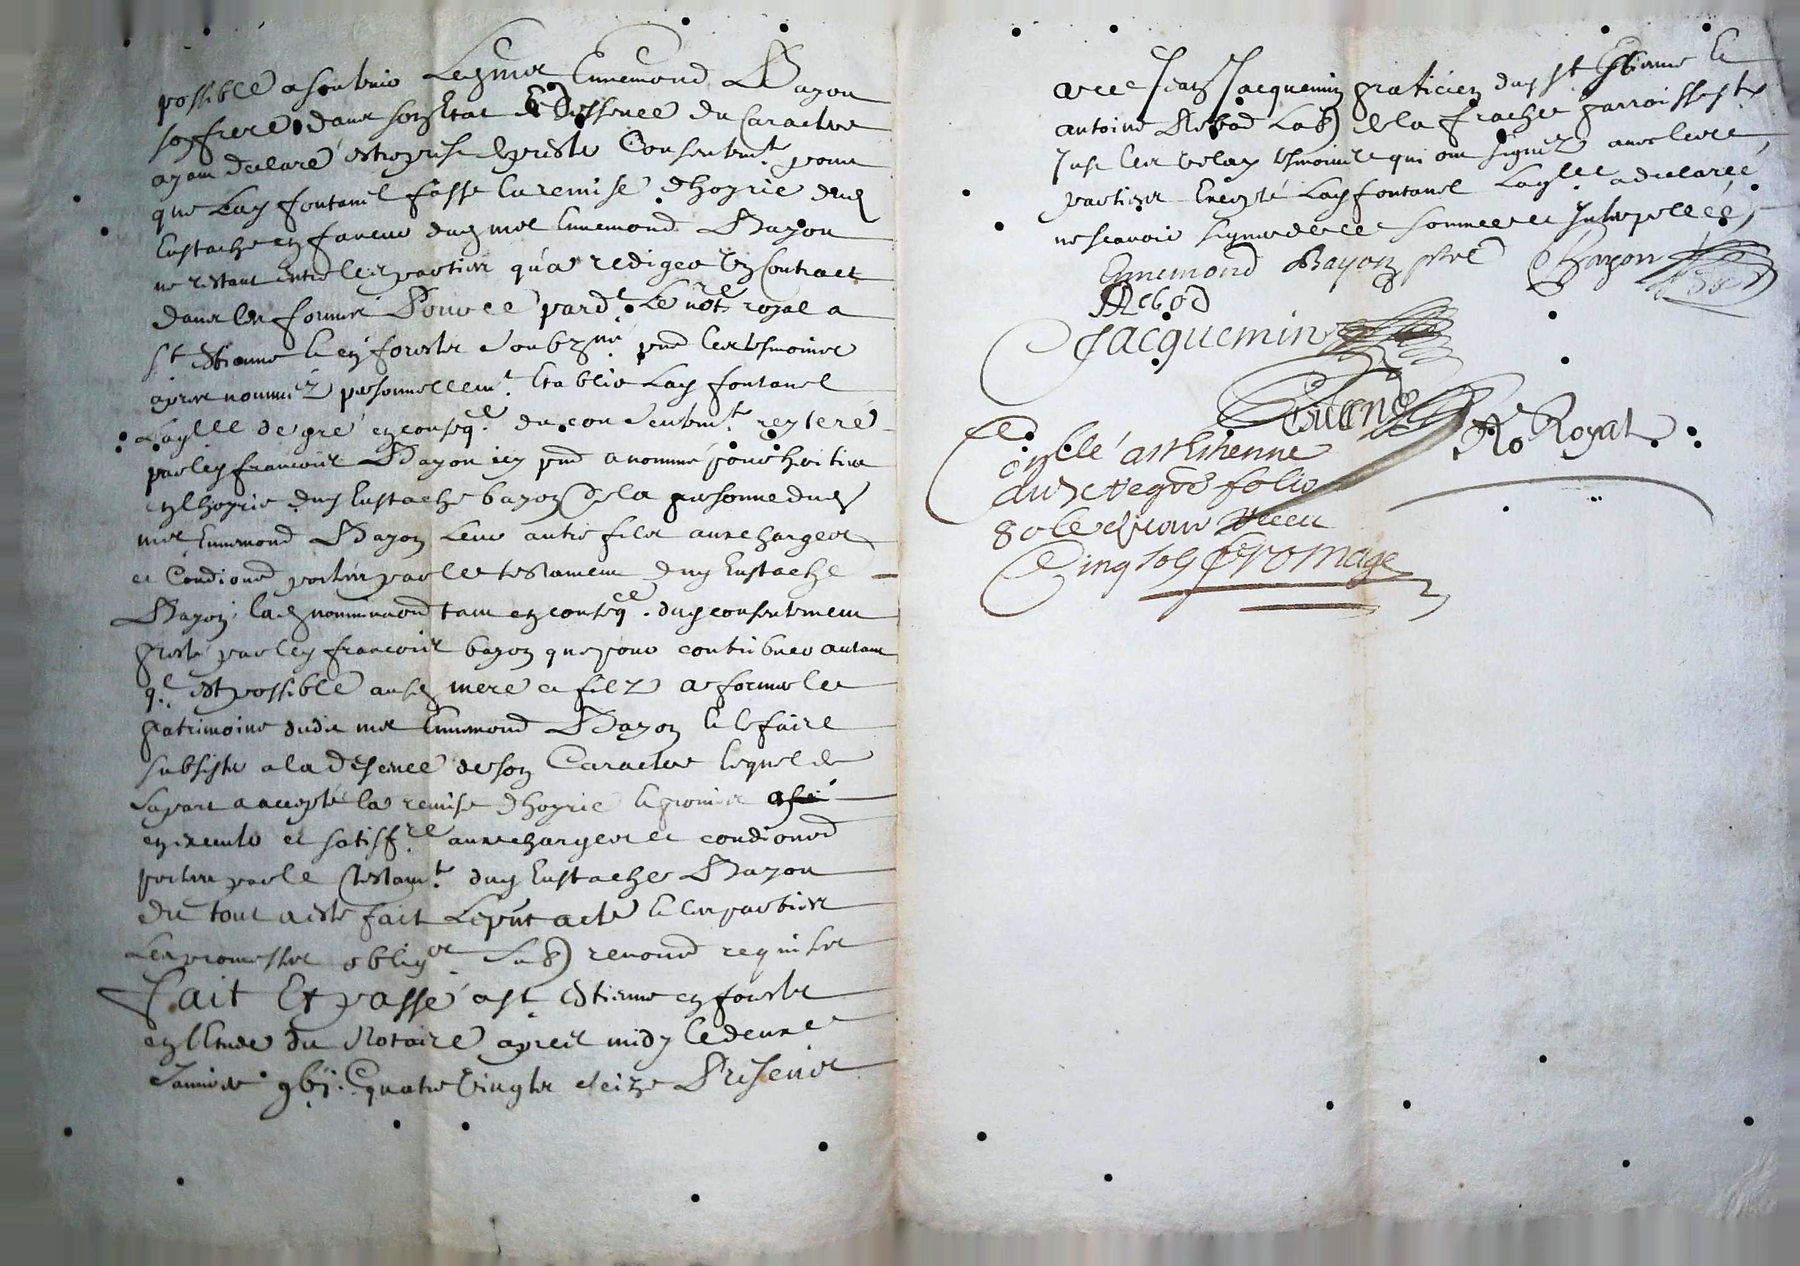 possible a soubvenir Led. mre Ennemond Bayon
soffrere dans son Estat & dessence du Caractere
ayan declaré estre prise & preste Consentemt. pour
que Lad. fontanel fasse la remise dhoyrie dud.
Eustache en faveur dud. mre Ennemond Bayon
ne restant entre les parties qu'a rediger le Contract
dans les formes Pour ce pard.t Le notre. royal a
st. Estienne le en forests soubzne. pnt les tesmoins
apres nommez personnellemt. Establie Lad. fontanel
Laqlle de gré en conseqce. du consentemt. reyteré
par led. francois Bayon icy pnt a nommé pour heritier
en lhoyrie dud. Eustache bayon de la personne dud.
mre Ennemond Bayon Leur autre filz aux charges
et Condions portées par le testament dud. Eustache
Bayon, lad. nominaon tant en conseqce. dud. consentement
presté par led. francois bayon que pour contribuer autant
ql. est possible ausd. mere et filz a former le
patrimoine dudit mre Ennemond Bayon & le faire
subsister a la desence de son Caractere lequel de
sa part a accepté la remise dhoyrie & promis
en executer et satisfre. aux charges et condions
portées par le testamt. dud. Eustache Bayon
du tout a esté fait Le pnt acte & les parties
Les promesses obligons renond requises
Fait Et passé a st. Estienne en forests
en lEtude du Notaire apres midy le deuxe
Janvier gbj. C quatre vingts seize Presens
avec Jean Jacquemin praticien dud. st. Estienne &
antoine Rebod Lab) de la frache parroisse st.
Just les velay tesmoins qui ont signez avec les
parties Excepté Lad. fontanel Laqlle a declaré
ne scavoir signer de ce sommee et Interpellee,
Ennemond Bayon ptre Bayon
Rebod
Jacquemin
No Royal
Cllé a st Estienne
aud. regre folio
80 le
Cinq sols fromage